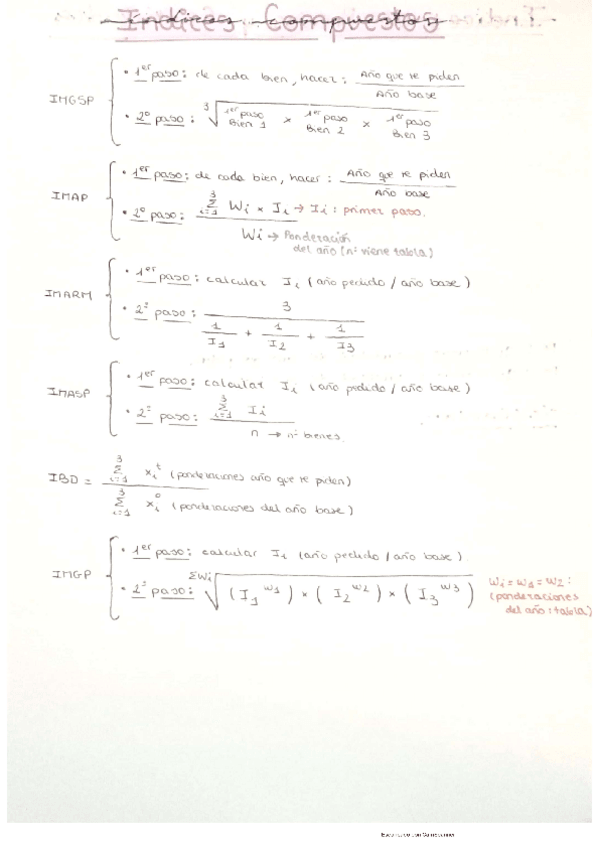 Índices Compuestos
IMGSP
• 1er paso: de cada bien, hacer: Año que te piden / Año base
• 2º paso: ³√ 1er paso Bien 1 × 1er paso Bien 2 × 1er paso Bien 3
IMAP
• 1er paso: de cada bien, hacer: Año que te piden / Año base
• 2º paso: 3 Σ i=1 Wi × Ii → Ii: primer paso.
Wi → Ponderación
del año (nº viene tabla)
IMARM
• 1er paso: calcular Ii (año pedido / año base)
• 2º paso: 3 / 1/I1 + 1/I2 + 1/I3
IMASP
• 1er paso: calcular Ii (año pedido / año base)
• 2º paso: 3 Σ i=1 Ii
n → nº bienes
IBD = 3 Σ i=1 xi^t (ponderaciones año que te piden)
3 Σ i=1 xi^0 (ponderaciones del año base)
IMGP
• 1er paso: calcular Ii (año pedido / año base)
• 2º paso: ΣWi √ (I1^w1) × (I2^w2) × (I3^w3)
Wi = w1 = w2:
(ponderaciones
del año: tabla)
Escaneado con CamScanner